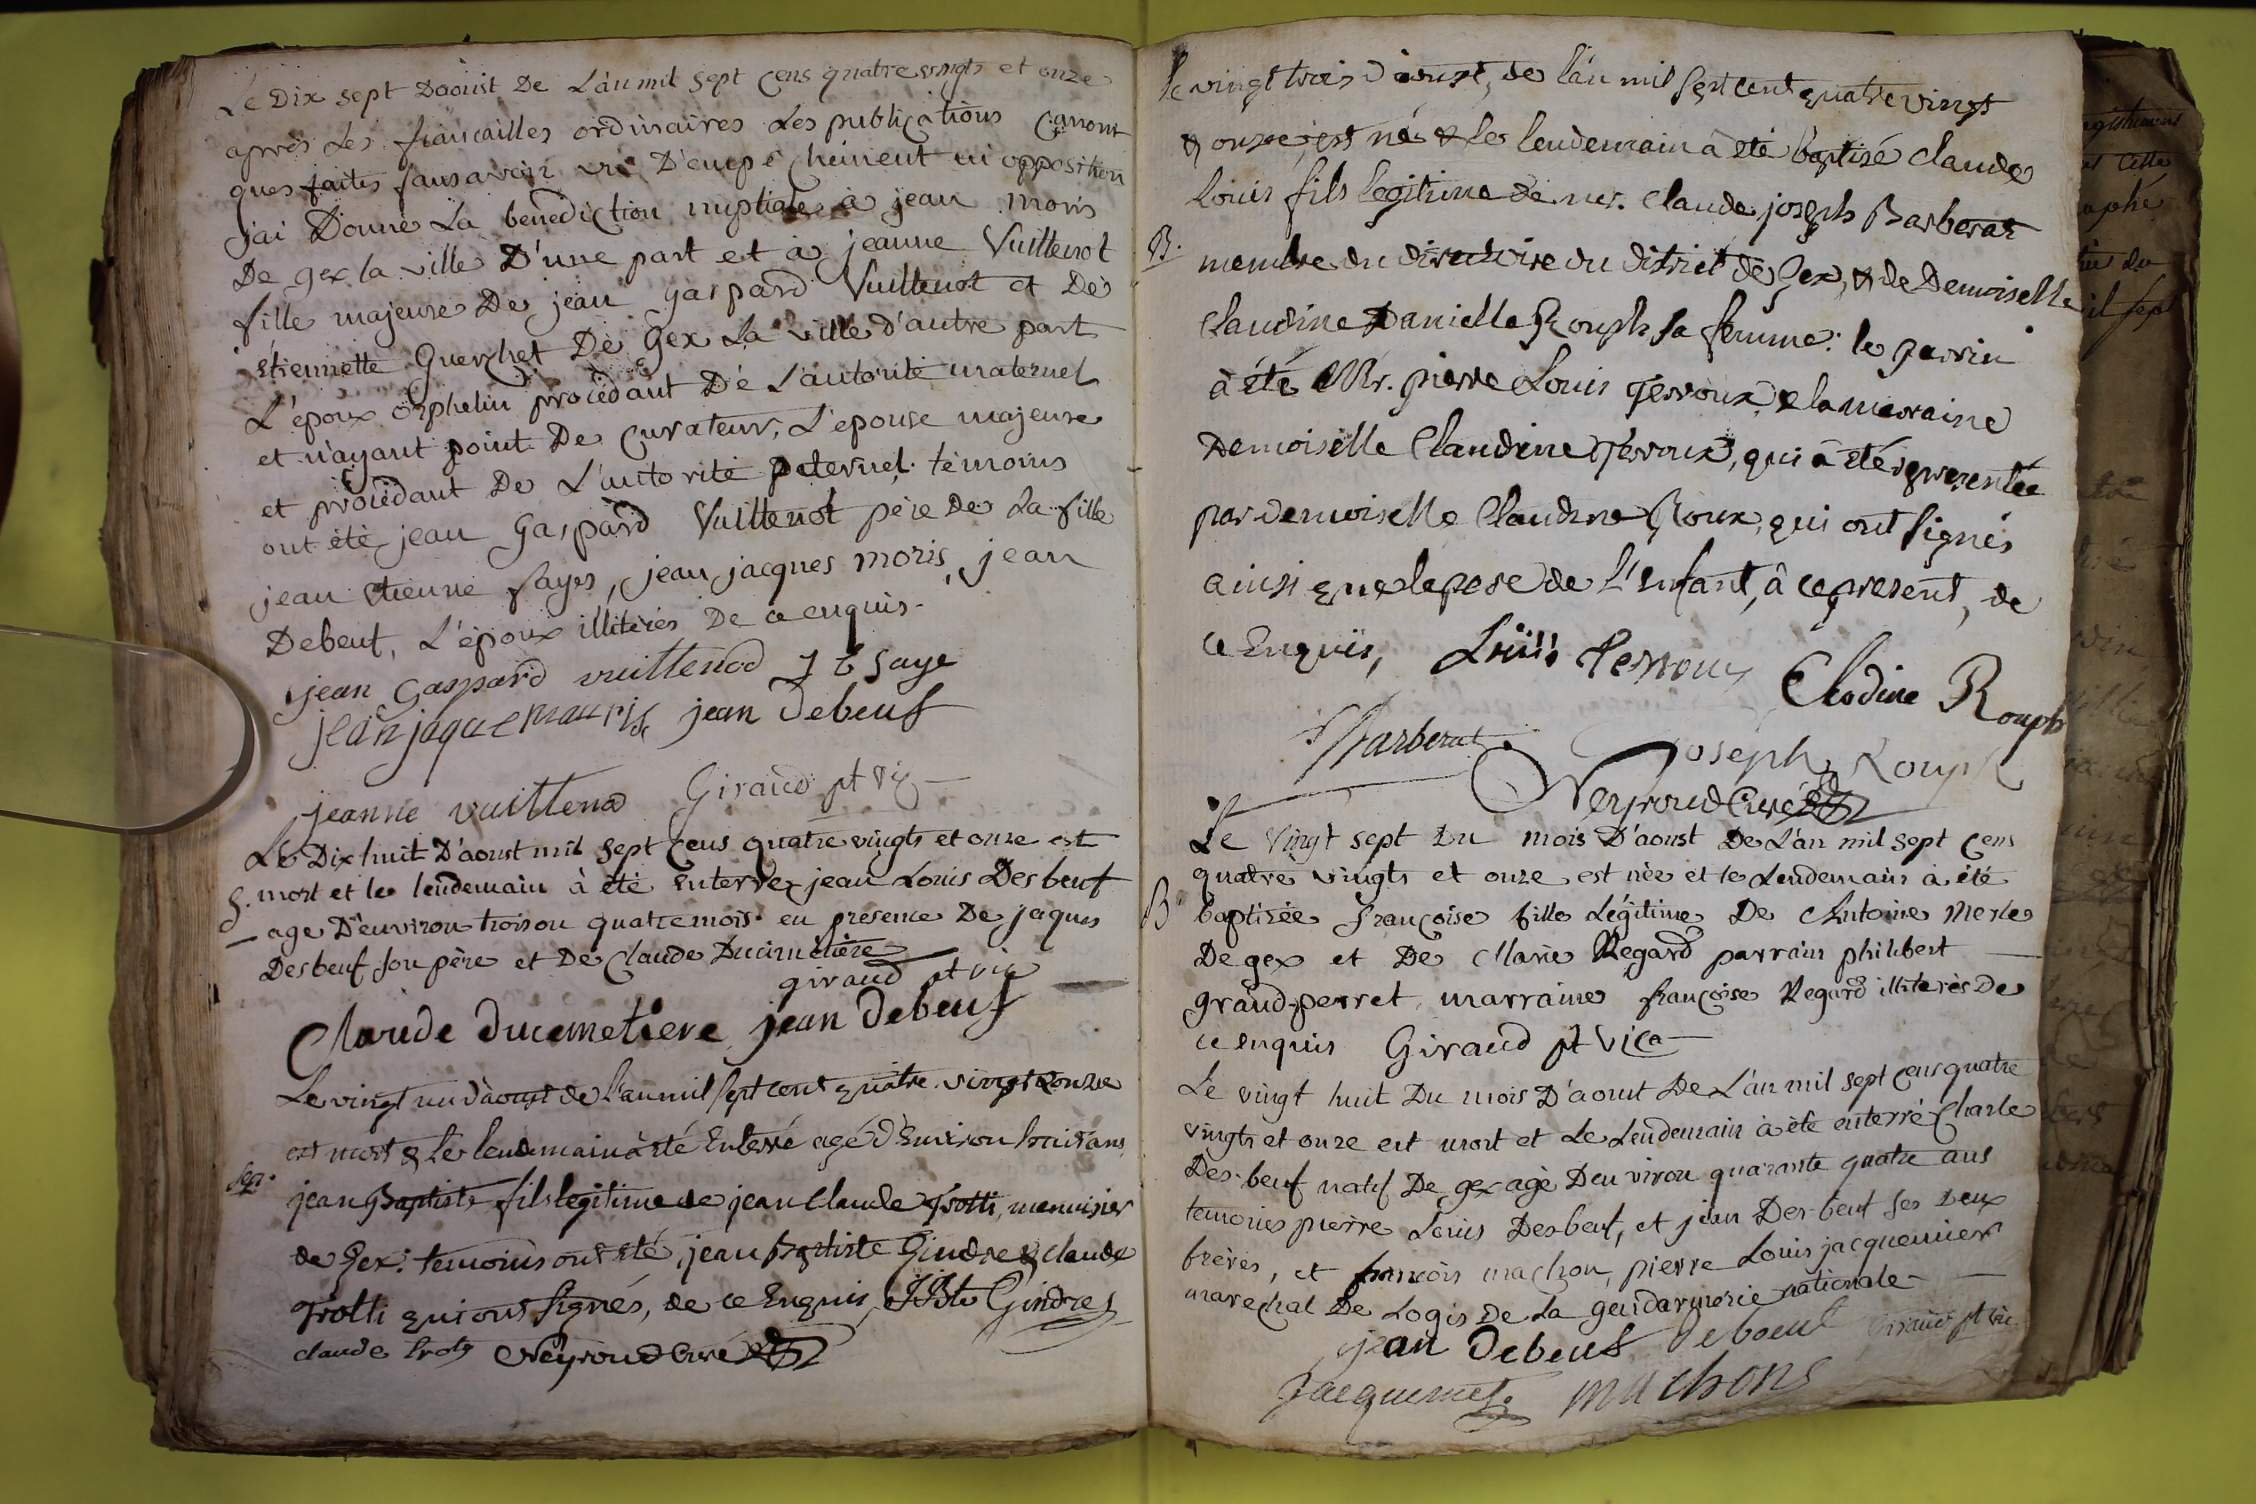 Le Dix sept Daoust De L'an mil sept cens quatre vingts et onze
après Les fiancailles ordinaires Les publications canoni
ques faites sans avoir vu D'empéchement ni opposition
j'ai Donné La bénédiction nuptiale à jean moris
De gex la ville D'une part et à jeanne Vuillenot
fille majeure De jean gaspard Vuillenot et De
étiennette Guerchet De Gex La ville d'autre part
L'époux orphelin procédant De L'autorité maternel
et n'ayant point De curateur, L'épouse majeure
et procédant De L'autorité paternel. témoins
ont été jean Gaspard Vuillenot père De La fille
jean étienne sayes, jean jacques moris, jean
Debeut, L'époux illiterés De ce enquis.
jean Gaspard vuillenod J E Saye
jean jaque mauris jean Debeuf
jeanne vuillenod Giraud pt vic
Le Dix huit D'aoust mil sept cens quatre vingts et onze est
S. mort et le lendemain à été enterré jean Louis Desbeuf
age D'environ trois ou quatre mois. en présence De jaques
Desbeuf son père et De Claude Ducimetière
giraud pt vic
Claude ducemetiere jean debeuf
Le vingt un d'àoust de l'an mil sept cent quatre vingt & onze
est mort & le lendemain à été Enterré agé d'Environ huit ans
Sep. jean Baptiste fils legitime de jean Claude Trotti, menuisier
de Gex: temoins ont été jean Baptiste Gindre & claude
Trotti qui ont signés, de ce Enquis, JBte Gindre
claude troty Neyroud Curé
le vingt trois d'àoust, de l'àn mil sept cent quatre vingt
& onze, est né & le lendemain à été baptisé claude
Louis fils legitime de mr. Claude joseph Barberat
B. membre du directoire du district de Gex, & de Demoiselle
Claudine Danielle Rouph sa femme: le parrin
à été Mr. pierre Louis Perroux, & la marraine
Demoiselle Claudine Perroux, qui à été representée
par demoiselle Claudine Roux, qui ont signés
ainsi que le pere de l'Enfant, à ce present, de
ce Enquis, Louis Perroux Clodine Rouph
Barberat Joseph Rouph
Neyroud Curé
Le vingt sept Du mois D'aoust De L'an mil sept cens
quatre vingts et onze est née et le Lendemain à été
B baptisée françoise fille Légitime De Antoine Merle
De gex et De Marie Regard parrain philibert
grand-perret marraine françoise Regard illiterés De
ce enquis Giraud pt vica
Le vingt huit Du mois D'aout De L'an mil sept cens quatre
vingts et onze est mort et Le Lendemain à été enterré Charle
Des-beuf natif De gex agé D'environ quarante quatre ans
temoins pierre Louis Des-beuf, et jean Des-beuf ses Deux
frères, et françois machon, pierre Louis jacquemier
marechal De Logis De La gendarmerie nationale
jean Debeuf deboeuf Giraud pt vic.
Jacquemier machons